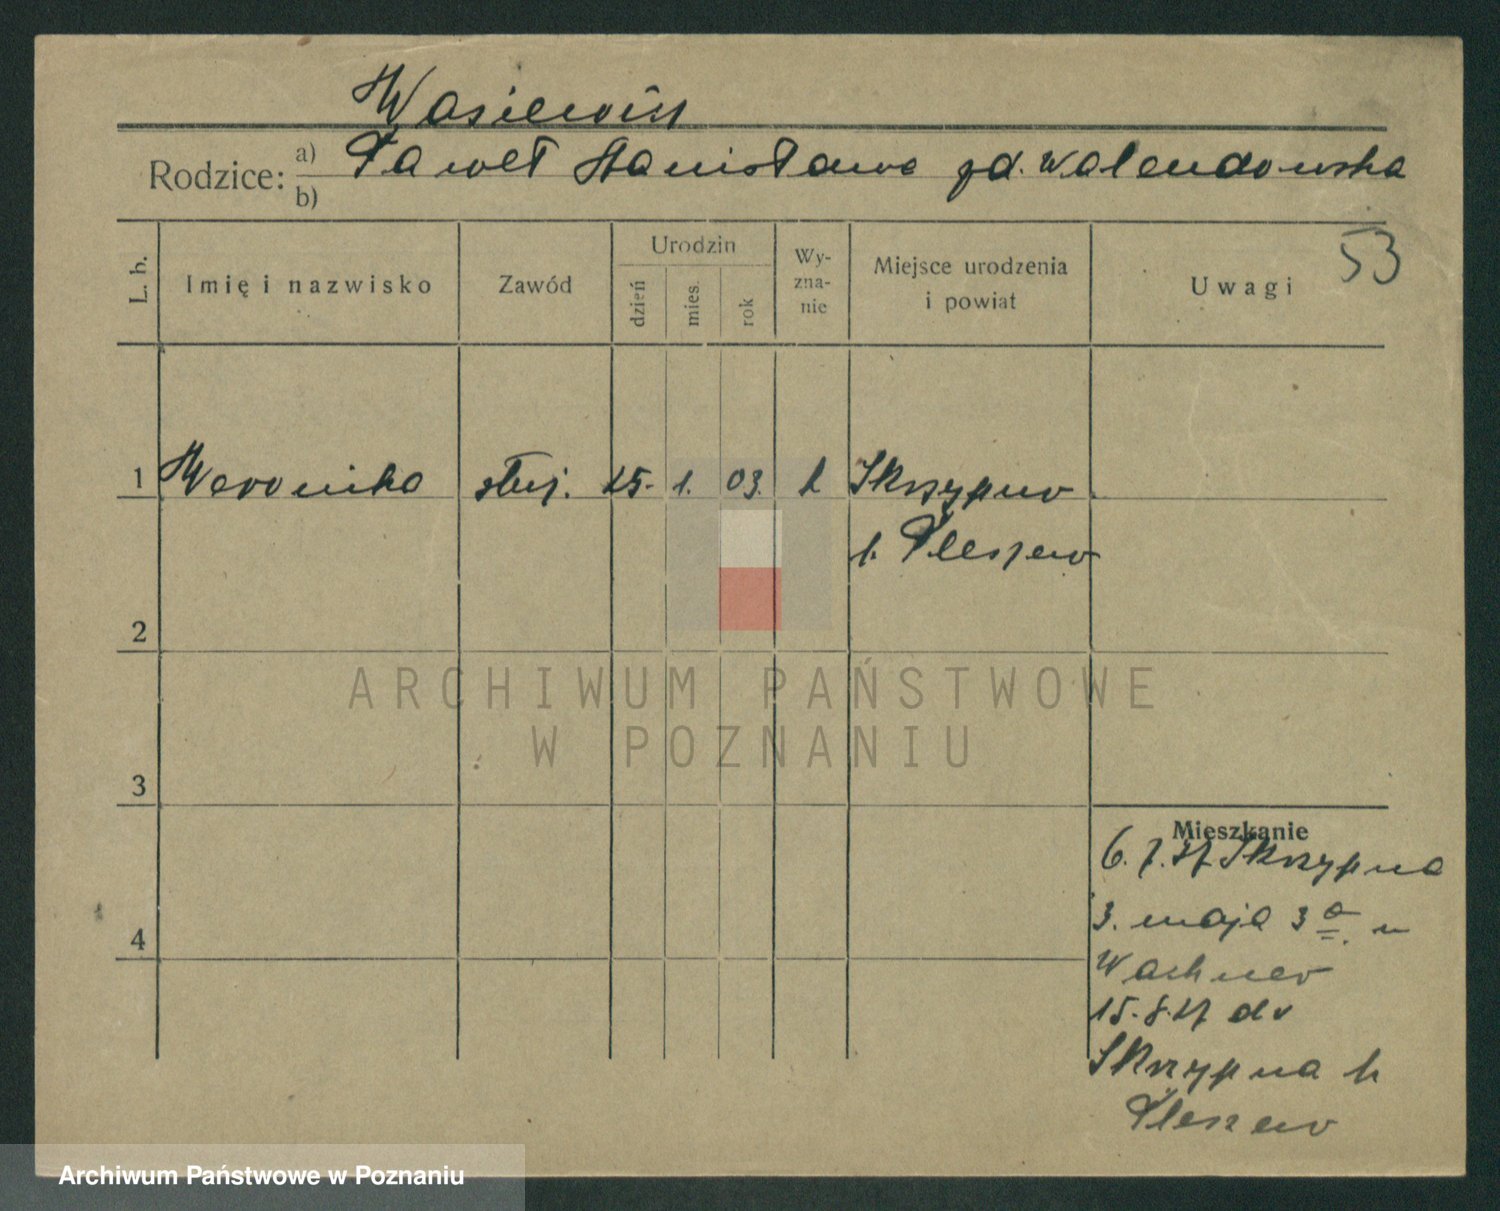 Wasiewicz
Rodzice: a) Paweł Stanisława zd. Walendowska
b)
L. b. Imię i nazwisko Zawód Urodzin dzień mies. rok Wyznanie Miejsce urodzenia i powiat Uwagi 53
1 Weronika służ. 15. 1. 03. k Skrzypno
p. Pleszew
2
3
4
Mieszkanie
6. 7. 27 Skrzypna
3. maja 3 a u
Wachner
15. 8. 27 do
Skrzypna p.
Pleszew
ARCHIWUM PAŃSTWOWE
W POZNANIU
Archiwum Państwowe w Poznaniu